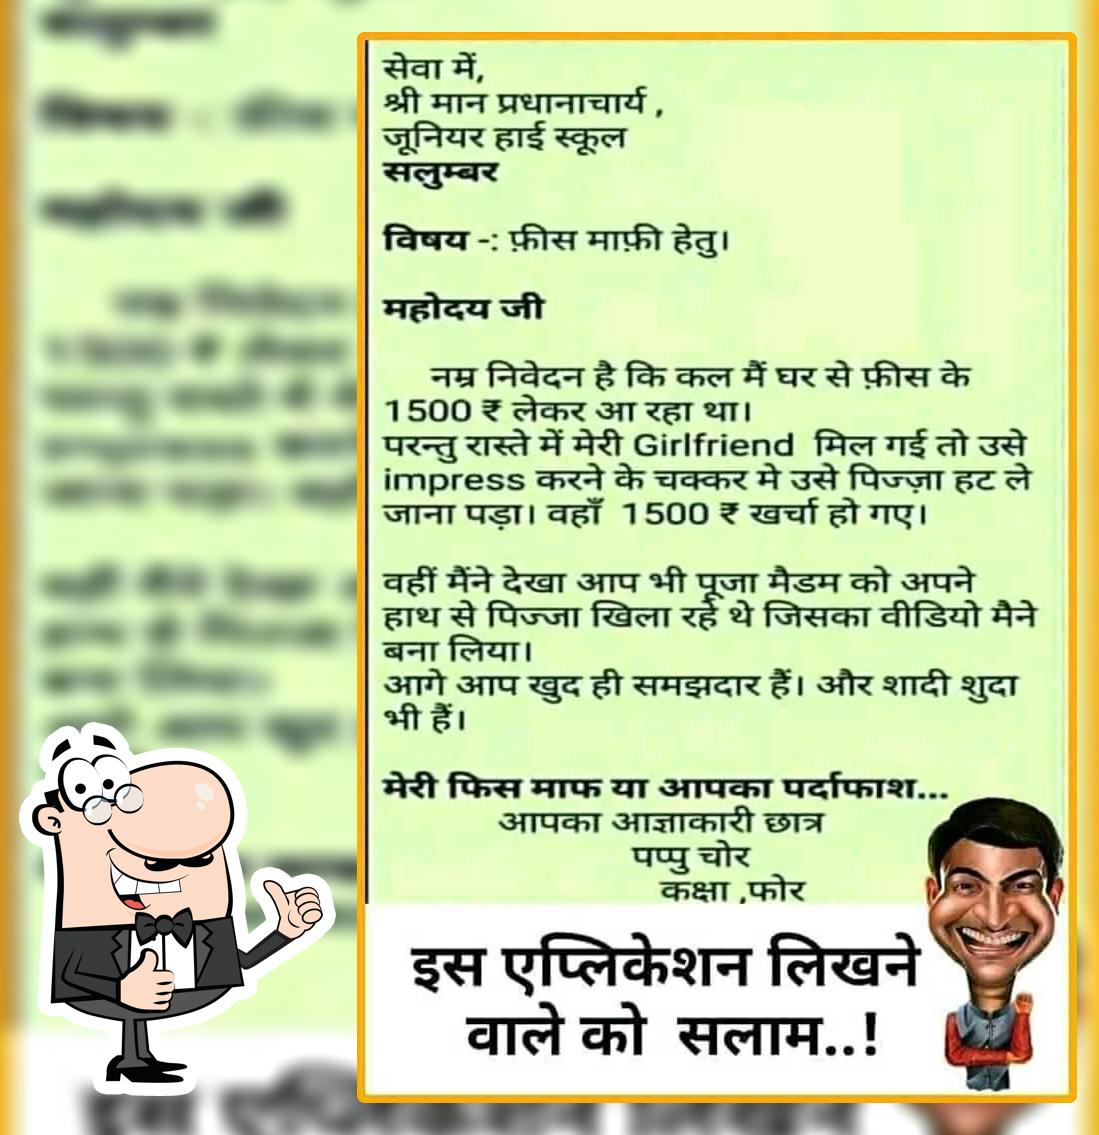 सेवा में,
श्री मान प्रधानाचार्य ,
जूनियर हाई स्कूल
सलुम्बर
विषय -: फ़ीस माफ़ी हेतु।
महोदय जी
नम्र निवेदन है कि कल मैं घर से फ़ीस के
1500 ₹ लेकर आ रहा था।
परन्तु रास्ते में मेरी Girlfriend मिल गई तो उसे
impress करने के चक्कर मे उसे पिज्ज़ा हट ले
जाना पड़ा। वहाँ 1500 ₹ खर्चा हो गए।
वहीं मैंने देखा आप भी पूजा मैडम को अपने
हाथ से पिज्जा खिला रहे थे जिसका वीडियो मैने
बना लिया।
आगे आप खुद ही समझदार हैं। और शादी शुदा
भी हैं।
मेरी फिस माफ या आपका पर्दाफाश...
आपका आज्ञाकारी छात्र
पप्पु चोर
कक्षा ,फोर
इस एप्लिकेशन लिखने
वाले को सलाम..!